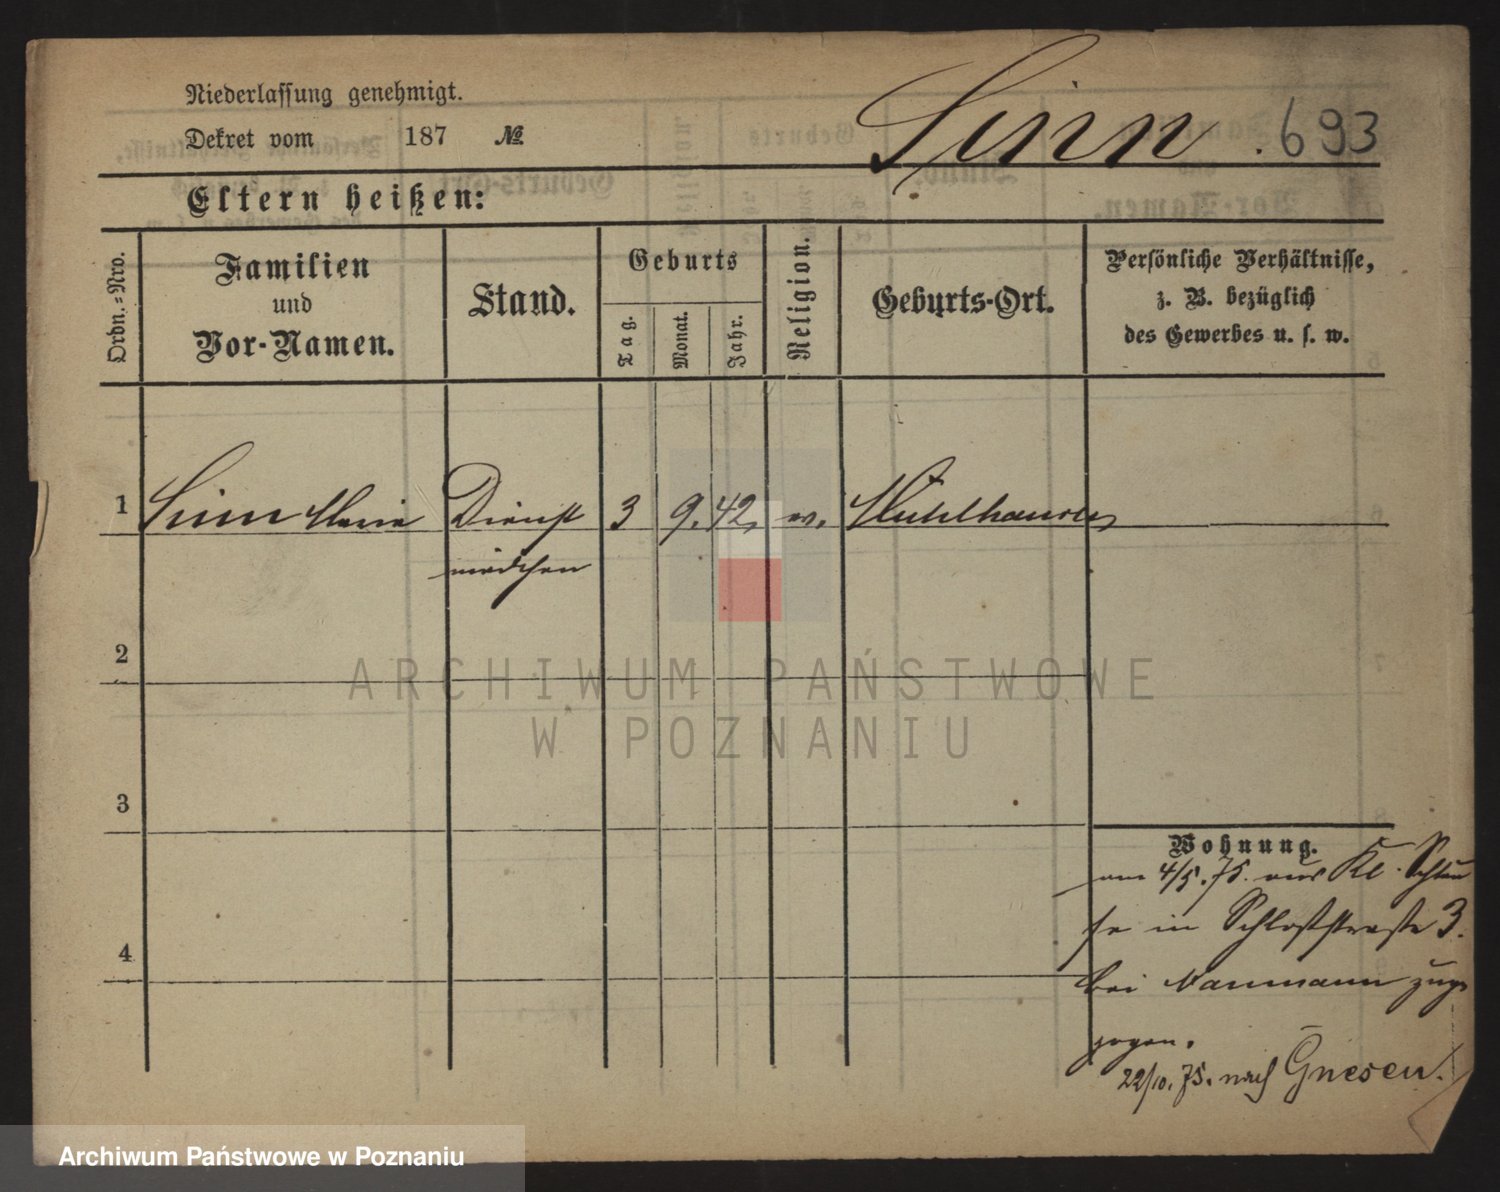 Niederlassung genehmigt.
Dekret vom 187 №
Sinn .693
Eltern heißen:
Ordn.-Nro.
Familien und Vor-Namen.
Stand.
Geburts
Tag.
Monat.
Jahr.
Religion.
Geburts-Ort.
Persönliche Verhältnisse,
z. B. bezüglich
des Gewerbes u. s. w.
1 Sinn Marie Dienst 3 9. 42,
mädchen
2
ARCHIWUM PAŃSTWOWE
W POZNANIU
3
4
Wohnung.
am 4/5. 75. aus Kl.
in Schloßstraße 3.
bei Naumann zuge
zogen.
22/10. 75. nach Gnesen.
Archiwum Państwowe w Poznaniu